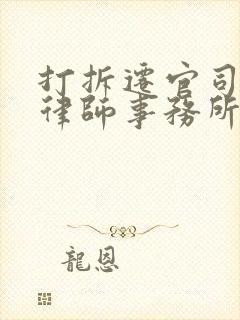 打拆遷官司
律師事務所
龍恩